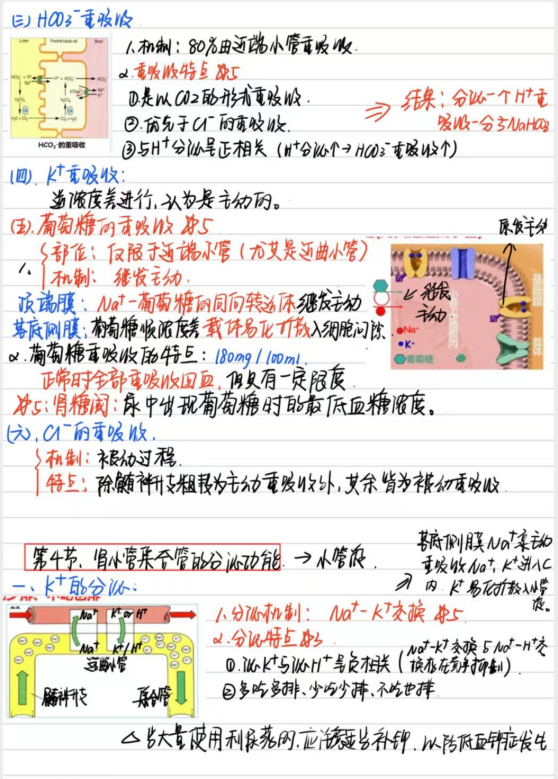 (三) HCO3⁻重吸收
1.机制：80%由近端小管重吸收.
2.重吸收特点 步5
①是以CO2的形式重吸收.
②.优先于Cl⁻的重吸收.
③与H⁺分泌呈正相关 (H⁺分泌↑→HCO3⁻重吸收↑)
⇒ 结果：分泌一个H⁺重
吸收一分子NaHCO3
HCO3⁻的重吸收
(四). K⁺重吸收:
逆浓度差进行,认为是主动的。
(五).葡萄糖的重吸收 步5
1、
部位：仅限于近端小管(尤其是近曲小管)
机制：继发主动.
顶端膜：Na⁺-葡萄糖的同向转运体继发主动
基底侧膜：葡萄糖顺浓度差载体易化扩散入细胞间隙.
2.葡萄糖重吸收的特点：180mg/100ml.
正常时全部重吸收回血,但具有一定限度.
步5:肾糖阈：尿中出现葡萄糖时的最低血糖浓度。
原发主动
继发
主动
Na⁺
K⁺
葡萄糖
(六). Cl⁻的重吸收.
机制：被动过程.
特点：除髓袢升支粗段为主动重吸收外,其余皆为被动重吸收.
第4节.肾小管集合管的分泌功能. →小管液.
基底侧膜Na⁺泵主动
重吸收Na⁺,K⁺进入C
内.K⁺易化扩散入小管
液
一、K⁺的分泌:
1.分泌机制：Na⁺-K⁺交换 步5
2.分泌特点 步3
①泌K⁺与泌H⁺呈负相关 (Na⁺-K⁺交换与Na⁺-H⁺交
换存在竞争抑制)
②多吃多排、少吃少排、不吃也排.
Na⁺ K⁺or H⁺
Na⁺ K⁺/H⁺
远曲小管
髓袢升支
集合管
△当大量使用利尿药时,应注意适当补钾.以防低血钾症发生